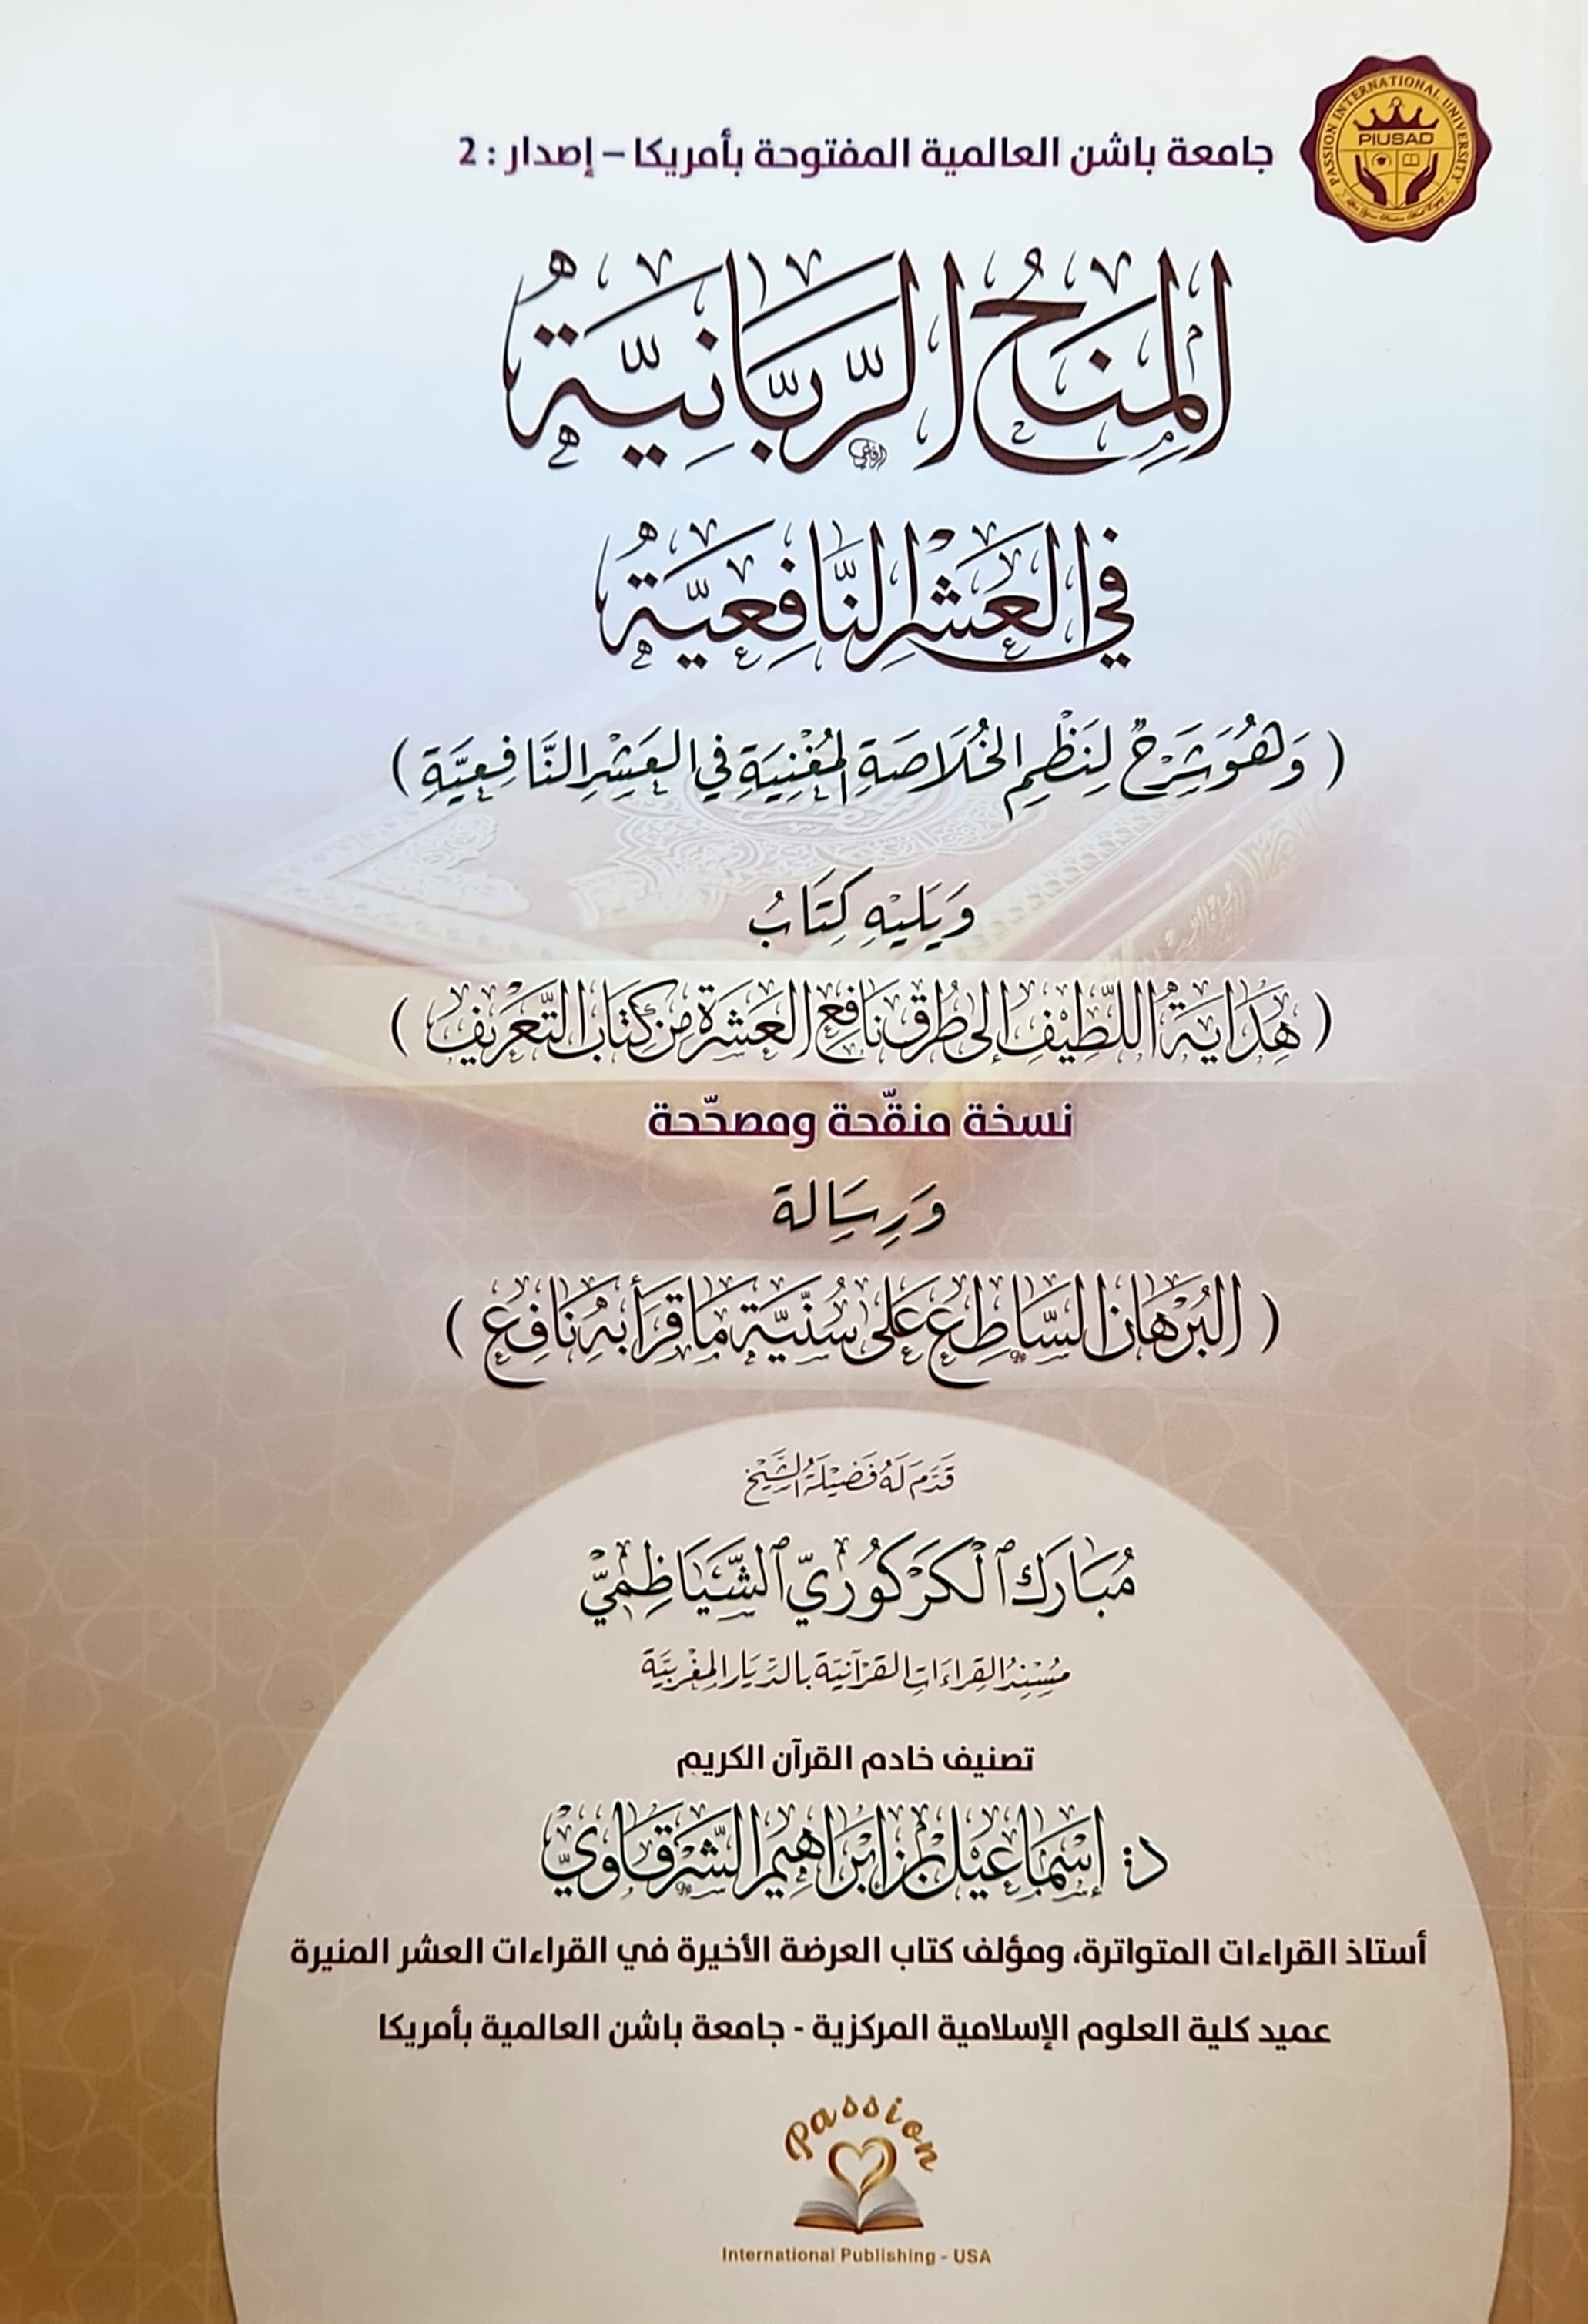 PASSION INTERNATIONAL UNIVERSITY
PIUSAD
جامعة باشن العالمية المفتوحة بأمريكا – إصدار : 2
المِنَحُ الرَّبَّانِيَّةُ
فِي العَشْرِ النَّافِعِيَّةُ
( وَهُوَ شَرْحٌ لِنَظْمِ الخُلَاصَةِ المُغْنِيَةِ فِي العَشْرِ النَّافِعِيَّةِ )
وَيَلِيْهِ كِتَابُ
( هِدَايَةُ اللَّطِيْفِ إِلَى طُرُقِ نَافِعِ العَشَرَةِ مِنْ كِتَابِ التَّعْرِيْفِ )
نسخة منقّحة ومصحّحة
وَرِسَالة
( البُرْهَانُ السَّاطِعُ عَلَى سُنِّيَّةِ مَا قَرَأَ بِهِ نَافِعُ )
قَدَّمَ لَهُ فَضِيْلَةُ الشَّيْخِ
مُبَارَك ٱلْكَرْكُوْرِيّ ٱلشَّيَاظِمِيّْ
مُسْنِدُ القِرَاءَاتِ القُرْآنِيَّة بِالدِّيَارِ المَغْرِبِيَّة
تصنيف خادم القرآن الكريم
د: إِسْمَاعِيْل بْنُ إِبْرَاهِيْم الشَّرْقَاوِيّْ
أستاذ القراءات المتواترة، ومؤلف كتاب العرضة الأخيرة في القراءات العشر المنيرة
عميد كلية العلوم الإسلامية المركزية - جامعة باشن العالمية بأمريكا
Passion
International Publishing - USA